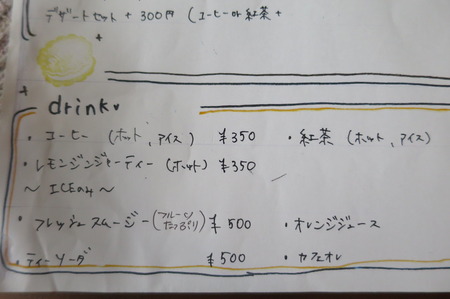 デザートセット + 300円 (コーヒーor紅茶 +
drink
・コーヒー (ホット、アイス) ¥350 ・紅茶 (ホット、アイス)
・レモンジンジャーティー (ホット) ¥350
〜 ICEも 〜
・フレッシュスムージー (フルーツたっぷり) ¥500 ・オレンジジュース
・ティーソーダ ¥500 ・カフェオレ